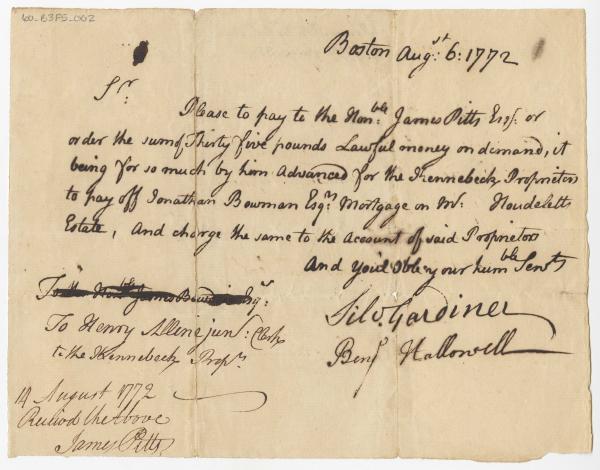 60-B3F5-002
Boston Augst. 6: 1772
Sr.
Please to pay to the Honble. James Pitts Esqr. or
order the sum of Thirty five pounds Lawful money on demand, it
being for so much by him Advanced for the Kennebeck Proprietors
to pay off Jonathan Bowman Esqrs Mortgage on Mr. Houdeletts
Estate, And charge the same to the Account of said Proprietors
And you'd Oblige your humble Servts
To the Honble James Bowdoin Esqr:
Silv. Gardiner
To Henry Allene junr: Clerk
Benj Hallowell
to the Kennebeck Proprs
14 August 1772
Receivd the Above
James Pitts